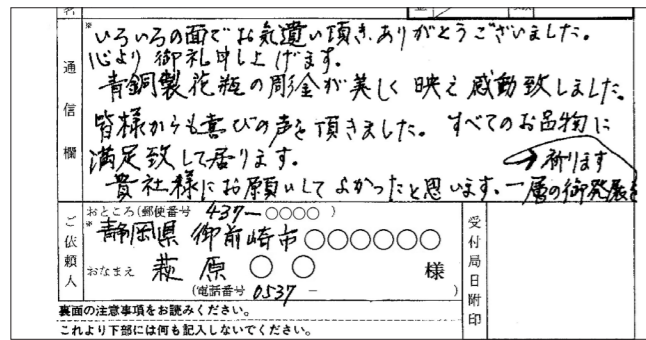 名
通信欄
※
いろいろの面でお気遣い頂き、ありがとうございました。
心より御礼申し上げます。
青銅製花瓶の彫金が美しく映え感動致しました。
皆様からも喜びの声を頂きました。すべてのお品物に
満足致して居ります。
貴社様にお願いしてよかったと思います。一層の御発展を
祈ります
ご依頼人
おところ(郵便番号 437-○○○○ )
※
静岡県 御前崎市○○○○○○
おなまえ 萩原 ○ ○ 様
(電話番号 0537 - )
受付局日附印
裏面の注意事項をお読みください。
これより下部には何も記入しないでください。